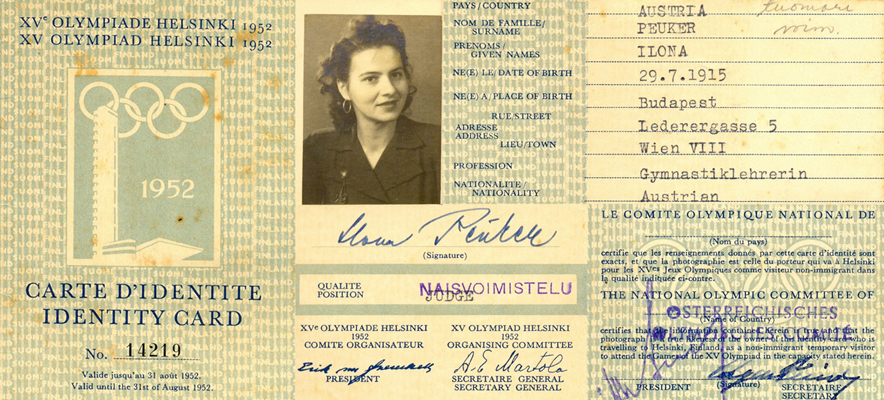 XVᵉ OLYMPIADE HELSINKI 1952
XV OLYMPIAD HELSINKI 1952
1952
CARTE D'IDENTITE
IDENTITY CARD
No. 14219
Valide jusqu'au 31 août 1952.
Valid until the 31st of August 1952.
PAYS/COUNTRY
NOM DE FAMILLE/
SURNAME
PRENOMS/
GIVEN NAMES
NE(E) LE/DATE OF BIRTH
NE(E) A/PLACE OF BIRTH
RUE/STREET
ADRESSE
ADDRESS
LIEU/TOWN
PROFESSION
NATIONALITE/
NATIONALITY
Ilona Peuker
(Signature)
QUALITE
POSITION
NAISVOIMISTELU
JUDGE
XVᵉ OLYMPIADE HELSINKI
1952
COMITE ORGANISATEUR
PRESIDENT
XV OLYMPIAD HELSINKI
1952
ORGANISING COMMITTEE
A.E. Martola
SECRETAIRE GENERAL
SECRETARY GENERAL
AUSTRIA
PEUKER
ILONA
29.7.1915
Budapest
Lederergasse 5
Wien VIII
Gymnastiklehrerin
Austrian
LE COMITE OLYMPIQUE NATIONAL DE
(Nom du pays)
certifie que les renseignements donnés par cette carte d'identité sont
exacts, et que la photographie est celle du porteur qui va à Helsinki
pour les XVᵉˢ Jeux Olympiques comme visiteur non-immigrant dans
la qualité indiquée ci-contre.
THE NATIONAL OLYMPIC COMMITTEE OF
ÖSTERREICHISCHES
(Name of Country)
OLYMPISCHES COMITÉ
certifies that the information contained herein is and that the
photograph is a true likeness of the owner of this identity card who is
travelling to Helsinki, Finland as a non-immigrant temporary visitor
to attend the Games of the XV Olympiad in the capacity stated herein.
PRESIDENT
(Signature)
SECRETAIRE
SECRETARY